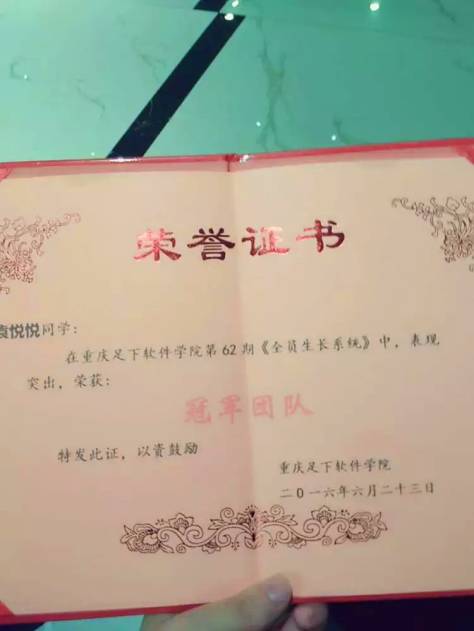 荣誉证书
袁悦悦同学：
在重庆足下软件学院第62期《全员生长系统》中，表现
突出，荣获：
冠军团队
特发此证，以资鼓励
重庆足下软件学院
二0一六年六月二十三日